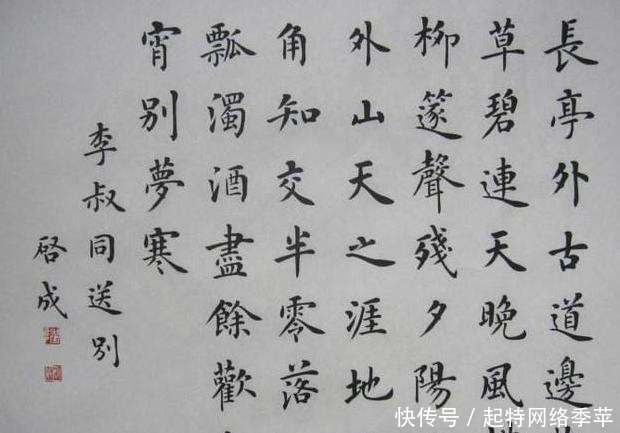 長亭外古道邊
草碧連天晚風
柳篴聲殘夕陽
外山天之涯地
角知交半零落
瓢濁酒盡餘歡
宵別夢寒
李叔同送别
啓成
快传号/起特网络季苹